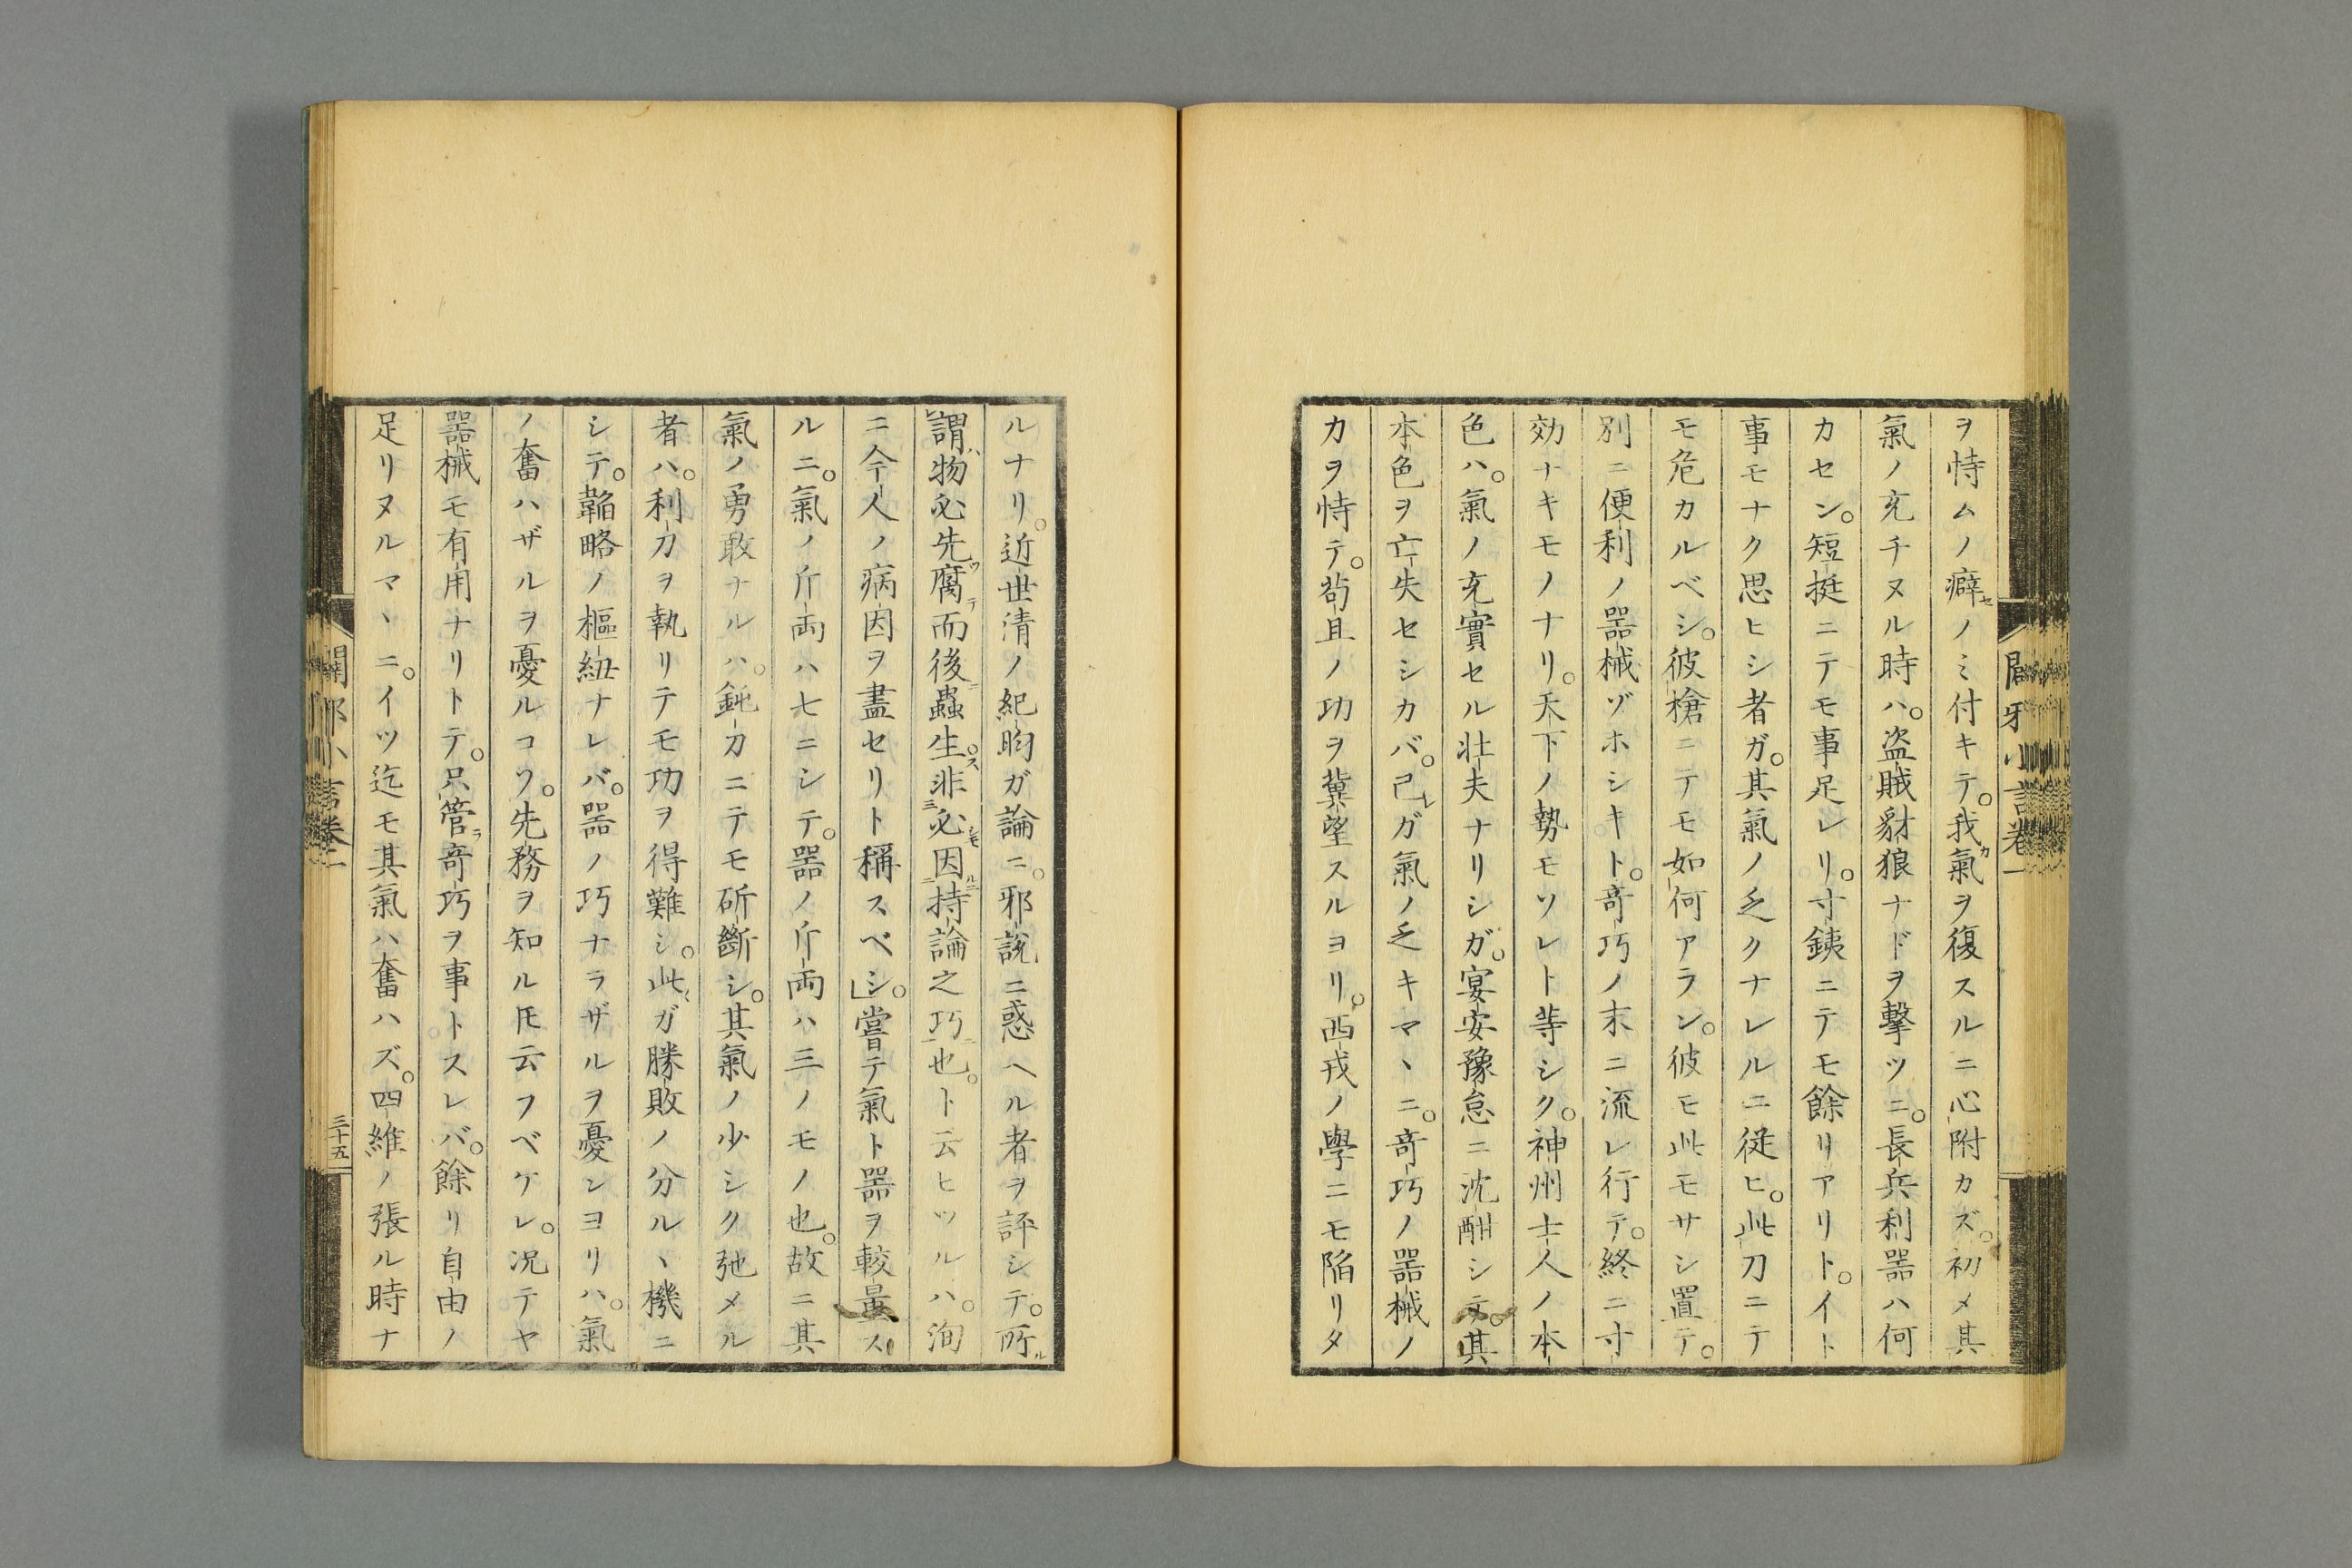 ヲ恃ムノ癖セノミ付キテ。我カ氣ヲ復スルニ心附カズ。初メ其
氣ノ充チヌル時ハ。盗賊豺狼ナドヲ撃ツニ。長兵利器ハ何
カセン。短挺ニテモ事足レリ。寸銕ニテモ餘リアリト。イト
事モナク思ヒシ者ガ。其氣ノ乏クナレルニ従ヒ。此刀ニテ
モ危カルベシ。彼槍ニテモ如何アラン。彼モ此モサシ置テ。
別ニ便利ノ器械ヅホシキト。竒巧ノ末ニ流レ行テ。終ニ寸
効ナキモノナリ。天下ノ勢モソレト䓁シク。神州士人ノ本
色ハ。氣ノ充實セル壮夫ナリシガ。宴安豫怠ニ沈酣シテ。其
本色ヲ亡失セシカバ。己レガ氣ノ乏キマヽニ。竒巧ノ器械ノ
力ヲ恃テ。苟且ノ功ヲ冀望スルヨリ。西戎ノ學ニモ陥リタ
ルナリ。近世清ノ紀昀ガ論ニ。邪説ニ惑ヘル者ヲ評シテ。所ル
謂ハ物必先ツ腐テ而後ニ蟲生ス。非三必シモ因ルニ二持論之巧一也。ト云ヒツルハ。洵
ニ今人ノ病因ヲ盡セリト稱スベシ。」嘗テ氣ト器ヲ較量ス
ルニ。氣ノ斤両ハ七ニシテ。器ノ斤両ハ三ノモノ也。故ニ其
氣ノ勇敢ナルハ。鈍刀ニテモ斫斷シ。其氣ノ少シク弛メル
者ハ。利刀ヲ執リテモ功ヲ得難シ。此ガ勝敗ノ分ルヽ機ニ
シテ。韜略ノ樞紐ナレバ。器ノ巧ナラザルヲ憂ンヨリハ。氣
ノ奮ハザルヲ憂ルコソ。先務ヲ知ルトモ云フベケレ。况テヤ
器械モ有用ナリトテ。只管ラ竒巧ヲ事トスレバ。餘リ自由ノ
足リヌルマヽニ。イツ迄モ其氣ハ奮ハズ。四維ノ張ル時ナ
三十五